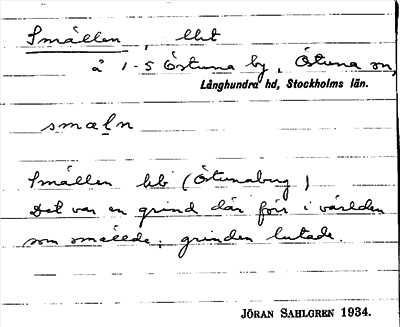 Smällen, llht
å 1-5 Östuna by, Östuna sn,
Långhundra hd, Stockholms län.
smæln
Smällen bb (Östunaberg)
Det var en grind där förr i världen
som smällde; grinden lutade.
JÖRAN SAHLGREN 1934.